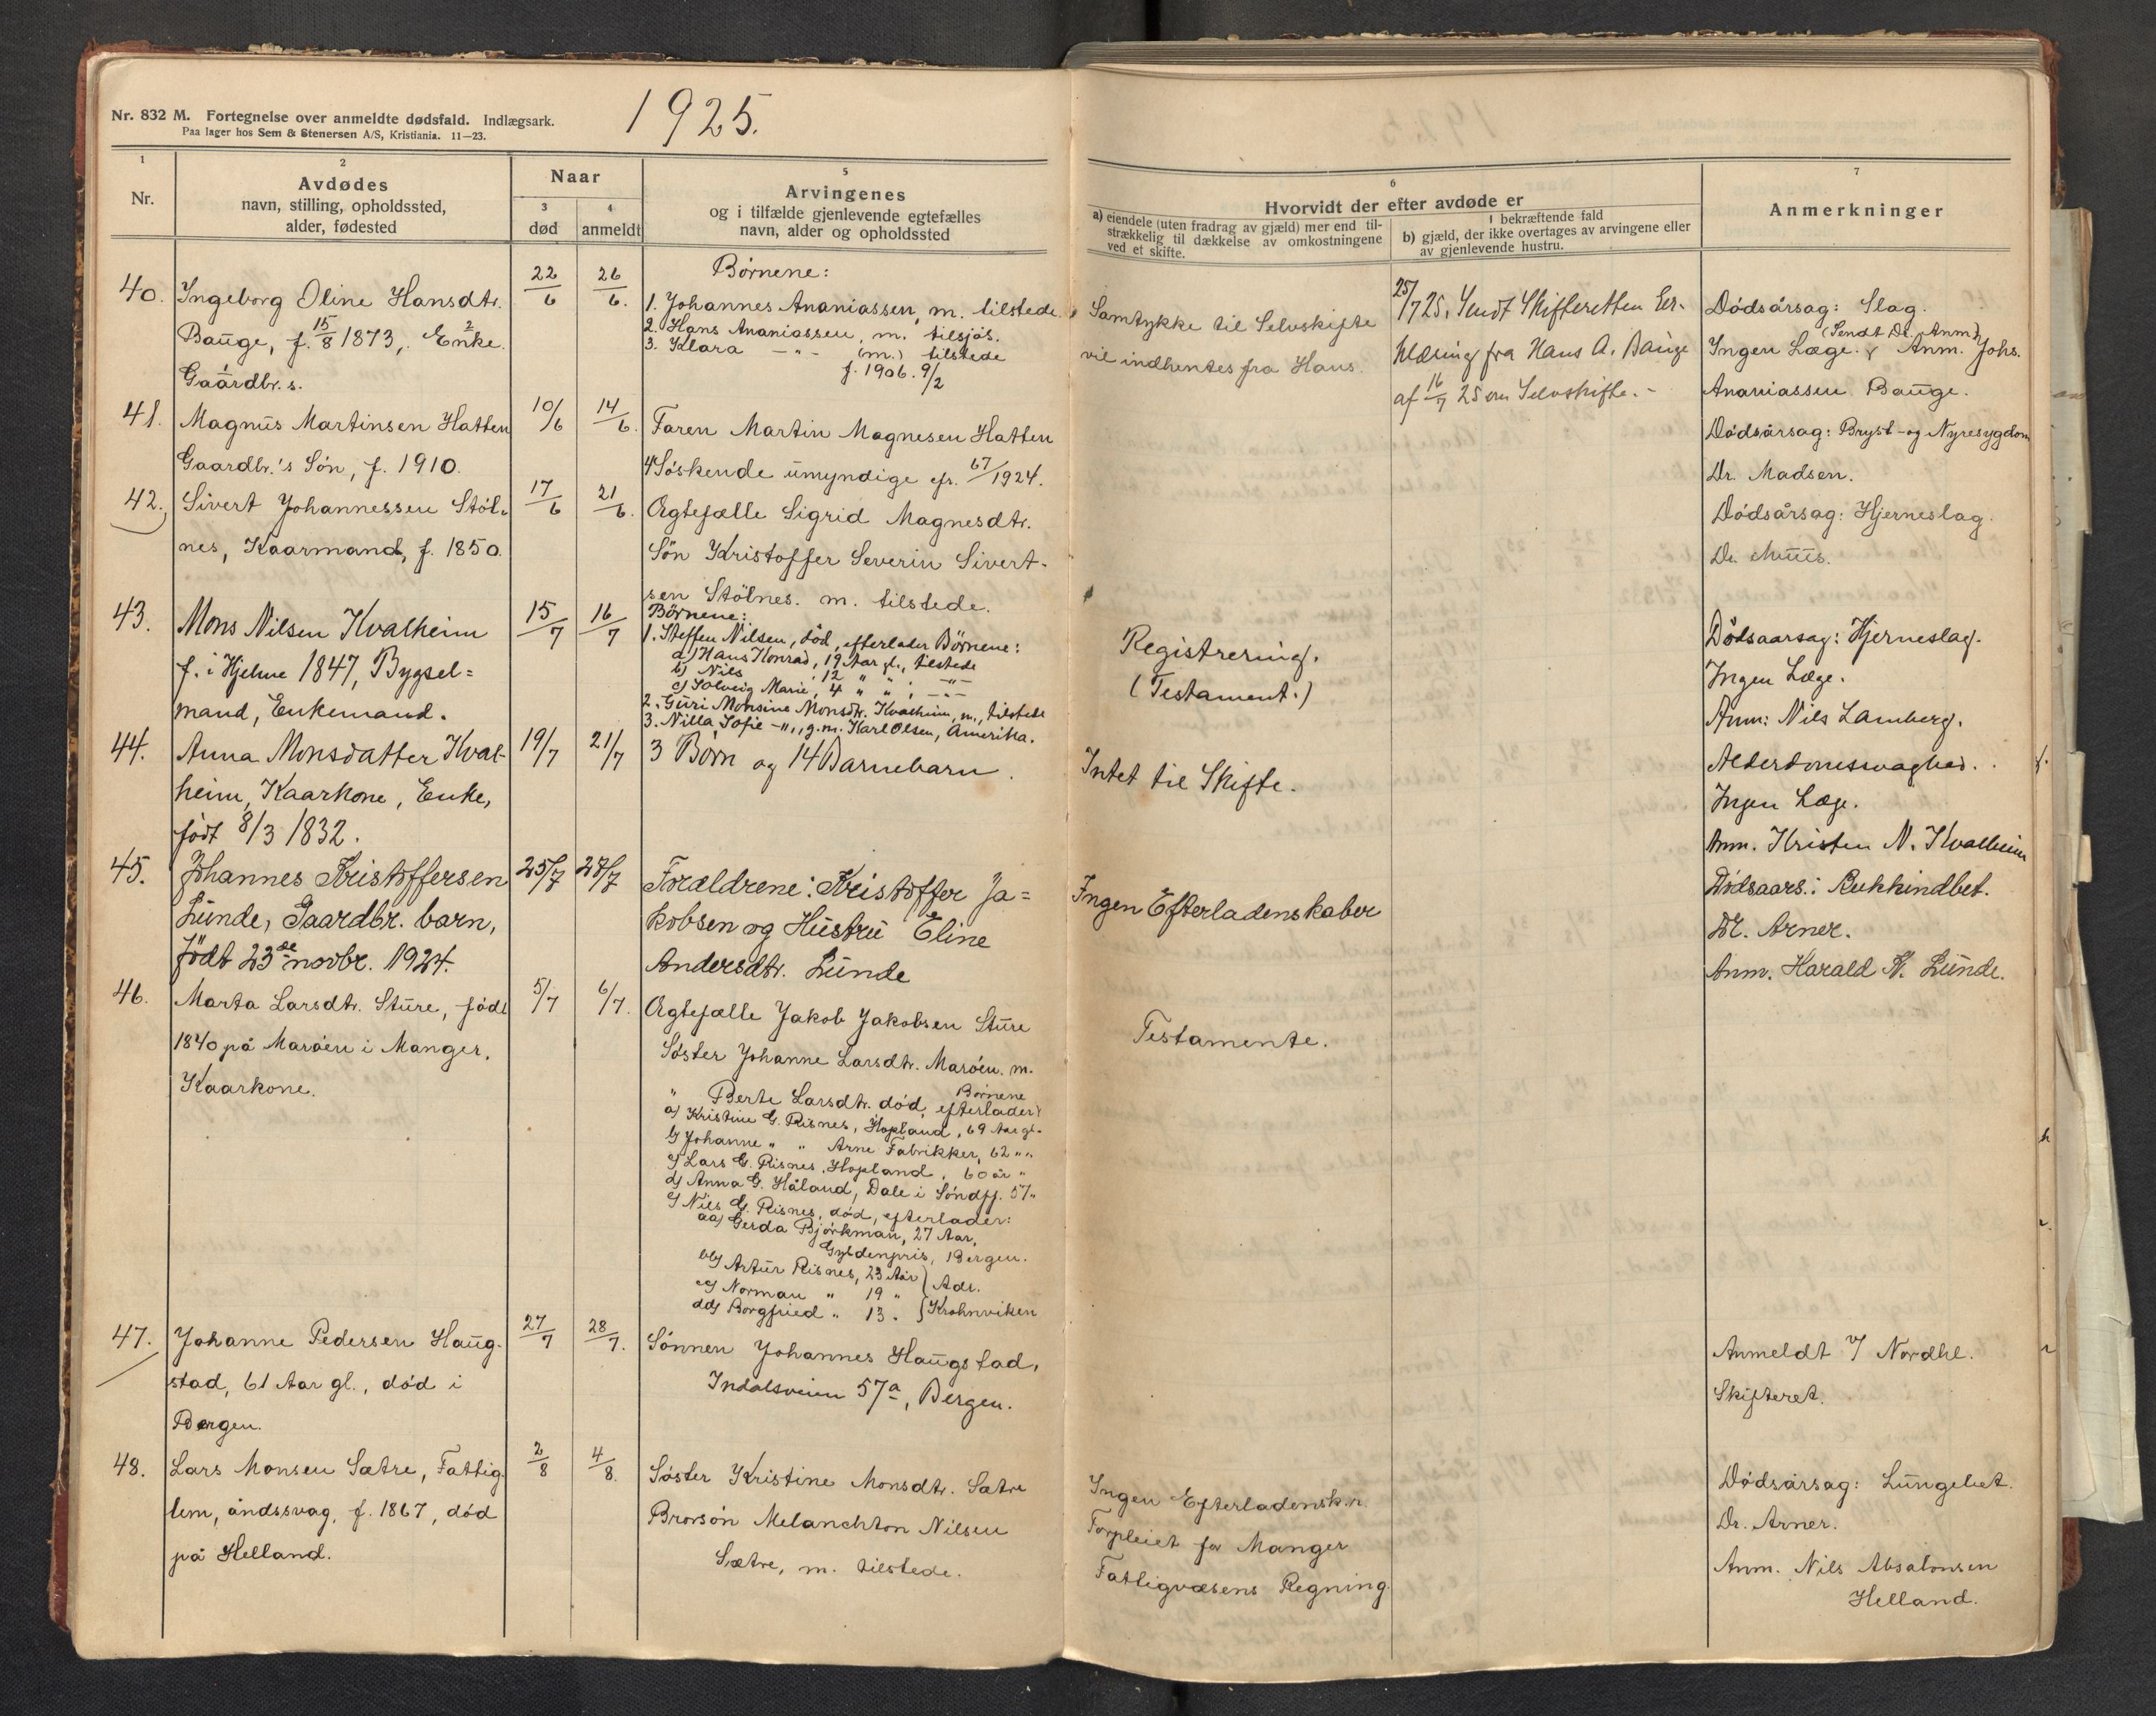 Nr. 832 M. Fortegnelse over anmeldte dødsfald. Indlægsark.
Paa lager hos Sem & Stenersen A/S, Kristiania. 11—23.
1925.
1
Nr.
2
Avdødes
navn, stilling, opholdssted,
alder, fødested
Naar
3
død
4
anmeldt
5
Arvingenes
og i tilfælde gjenlevende egtefælles
navn, alder og opholdssted
6
Hvorvidt der efter avdøde er
a) eiendele (uten fradrag av gjæld) mer end til-
strækkelig til dækkelse av omkostningene
ved et skifte.
I bekræftende fald
b) gjæld, der ikke overtages av arvingene eller
av gjenlevende hustru.
7
Anmerkninger
40.
Ingeborg Oline Hansdtr.
Bauge, f. 15/8 1873, Enke.
Gaardbr.s.
22/6
26/6.
Børnene:
1. Johannes Ananiassen, m. tilstede.
2. Hans Ananiassen, m. tilsjøs.
3. Klara -"- (m.) tilstede
f. 1906. 9/2
Samtykke til Selvskifte
vil indhentes fra Hans.
25/7 25. Sendt Skifteretten Er-
klæring fra Hans A. Bauge
af 16/7 25 om Selvskifte.-
Dødsårsag: Slag.
(Sendt Dr. Anm.)
Ingen Læge. Anm. Johs.
Ananiassen Bauge.
41.
Magnus Martinsen Hatten
Gaardbr.'s Søn, f. 1910.
10/6
14/6.
Faren Martin Magnesen Hatten
4 Søskende umyndige cfr. 67/1924.
Dødsårsag: Bryst- og Nyresygdom
Dr. Madsen.
42.
Sivert Johannessen Støl-
nes, Kaarmand, f. 1850.
17/6
21/6.
Ægtefælle Sigrid Magnesdtr.
Søn Kristoffer Severin Sivert-
sen Stølnes. m. tilstede.
Dødsårsag: Hjerneslag.
Dr. Muus.
43.
Mons Nilsen Kvalheim
f. i Hjelme 1847, Bygsel=
mand, Enkemand.
15/7
16/7
Børnene:
1. Steffen Nilsen, død, efterlader Børnene:
a) Hans Konrad, 19 Aar gl., tilstede
b) Nils , 12 " " , -"-
c) Solveig Marie, 4 " " , -"-
2. Guri Monsine Monsdtr. Kvalheim, m., tilstede
3. Nilla Sofie -"-, g.m. Karl Olsen, Amerika.
Registrering.
(Testament.)
Dødsaarsag: Hjerneslag.
Ingen Læge.
Anm: Nils Lamberg.
44.
Anna Monsdatter Kval-
heim, Kaarkone, Enke,
født 8/3 1832.
19/7
21/7
3 Børn og 14 Barnebarn.
Intet til Skifte.
Alderdomssvaghed.
Ingen Læge.
Anm. Kristen N. Kvalheim
45.
Johannes Kristoffersen
Lunde, Gaardbr. barn,
født 23de novbr. 1924.
25/7
28/7
Forældrene: Kristoffer Ja=
kobsen og Hustru Eline
Andersdtr. Lunde
Ingen Efterladenskaber
Dødsaars: Lukkindbet.
Dr. Arner.
Anm. Harald K. Lunde.
46.
Marta Larsdtr. Sture, født
1840 på Marøen i Manger.
Kaarkone.
5/7
6/7.
Ægtefælle Jakob Jakobsen Sture
Søster Johanne Larsdtr. Marøen. m.
" Berte Larsdtr. død, efterlader Børnene
a) Kristine G. Risnes, Hopland, 69 Aar gl.
b) Johanne " " Arne Fabrikker, 62 " "
c) Lars G. Risnes, Hopland, 60 år "
d) Anna G. Håland, Dale i Søndfj. 57 "
e) Nils G. Risnes, død, efterlader:
aa) Gerda Bjørkman, 27 Aar,
Gyldenpris, Bergen.
bb) Artur Risnes, 23 Aar } Adr.
cc) Norman " 19 "
dd) Borgfried " 13. { Krohnviken
Testamente.
47.
Johanne Pedersen Haug-
stad, 61 Aar gl., død i
Bergen.
27/7
28/7.
Sønnen Johannes Haugstad,
Indalsveien 57a, Bergen.
Anmeldt v/ Nordhl.
Skifteret.
48.
Lars Monsen Sætre, Fattig-
lem, åndssvag, f. 1867, død
på Helland.
2/8
4/8.
Søster Kristine Monsdtr. Sætre
Brorsøn Melanchton Nilsen
Sætre, m. tilstede.
Ingen Efterladensk.r.
Forpleiet for Manger
Fattigvæsens Regning.
Dødsårsag: Lungebet.
Dr. Arner.
Anm. Nils Absalonsen
Helland.